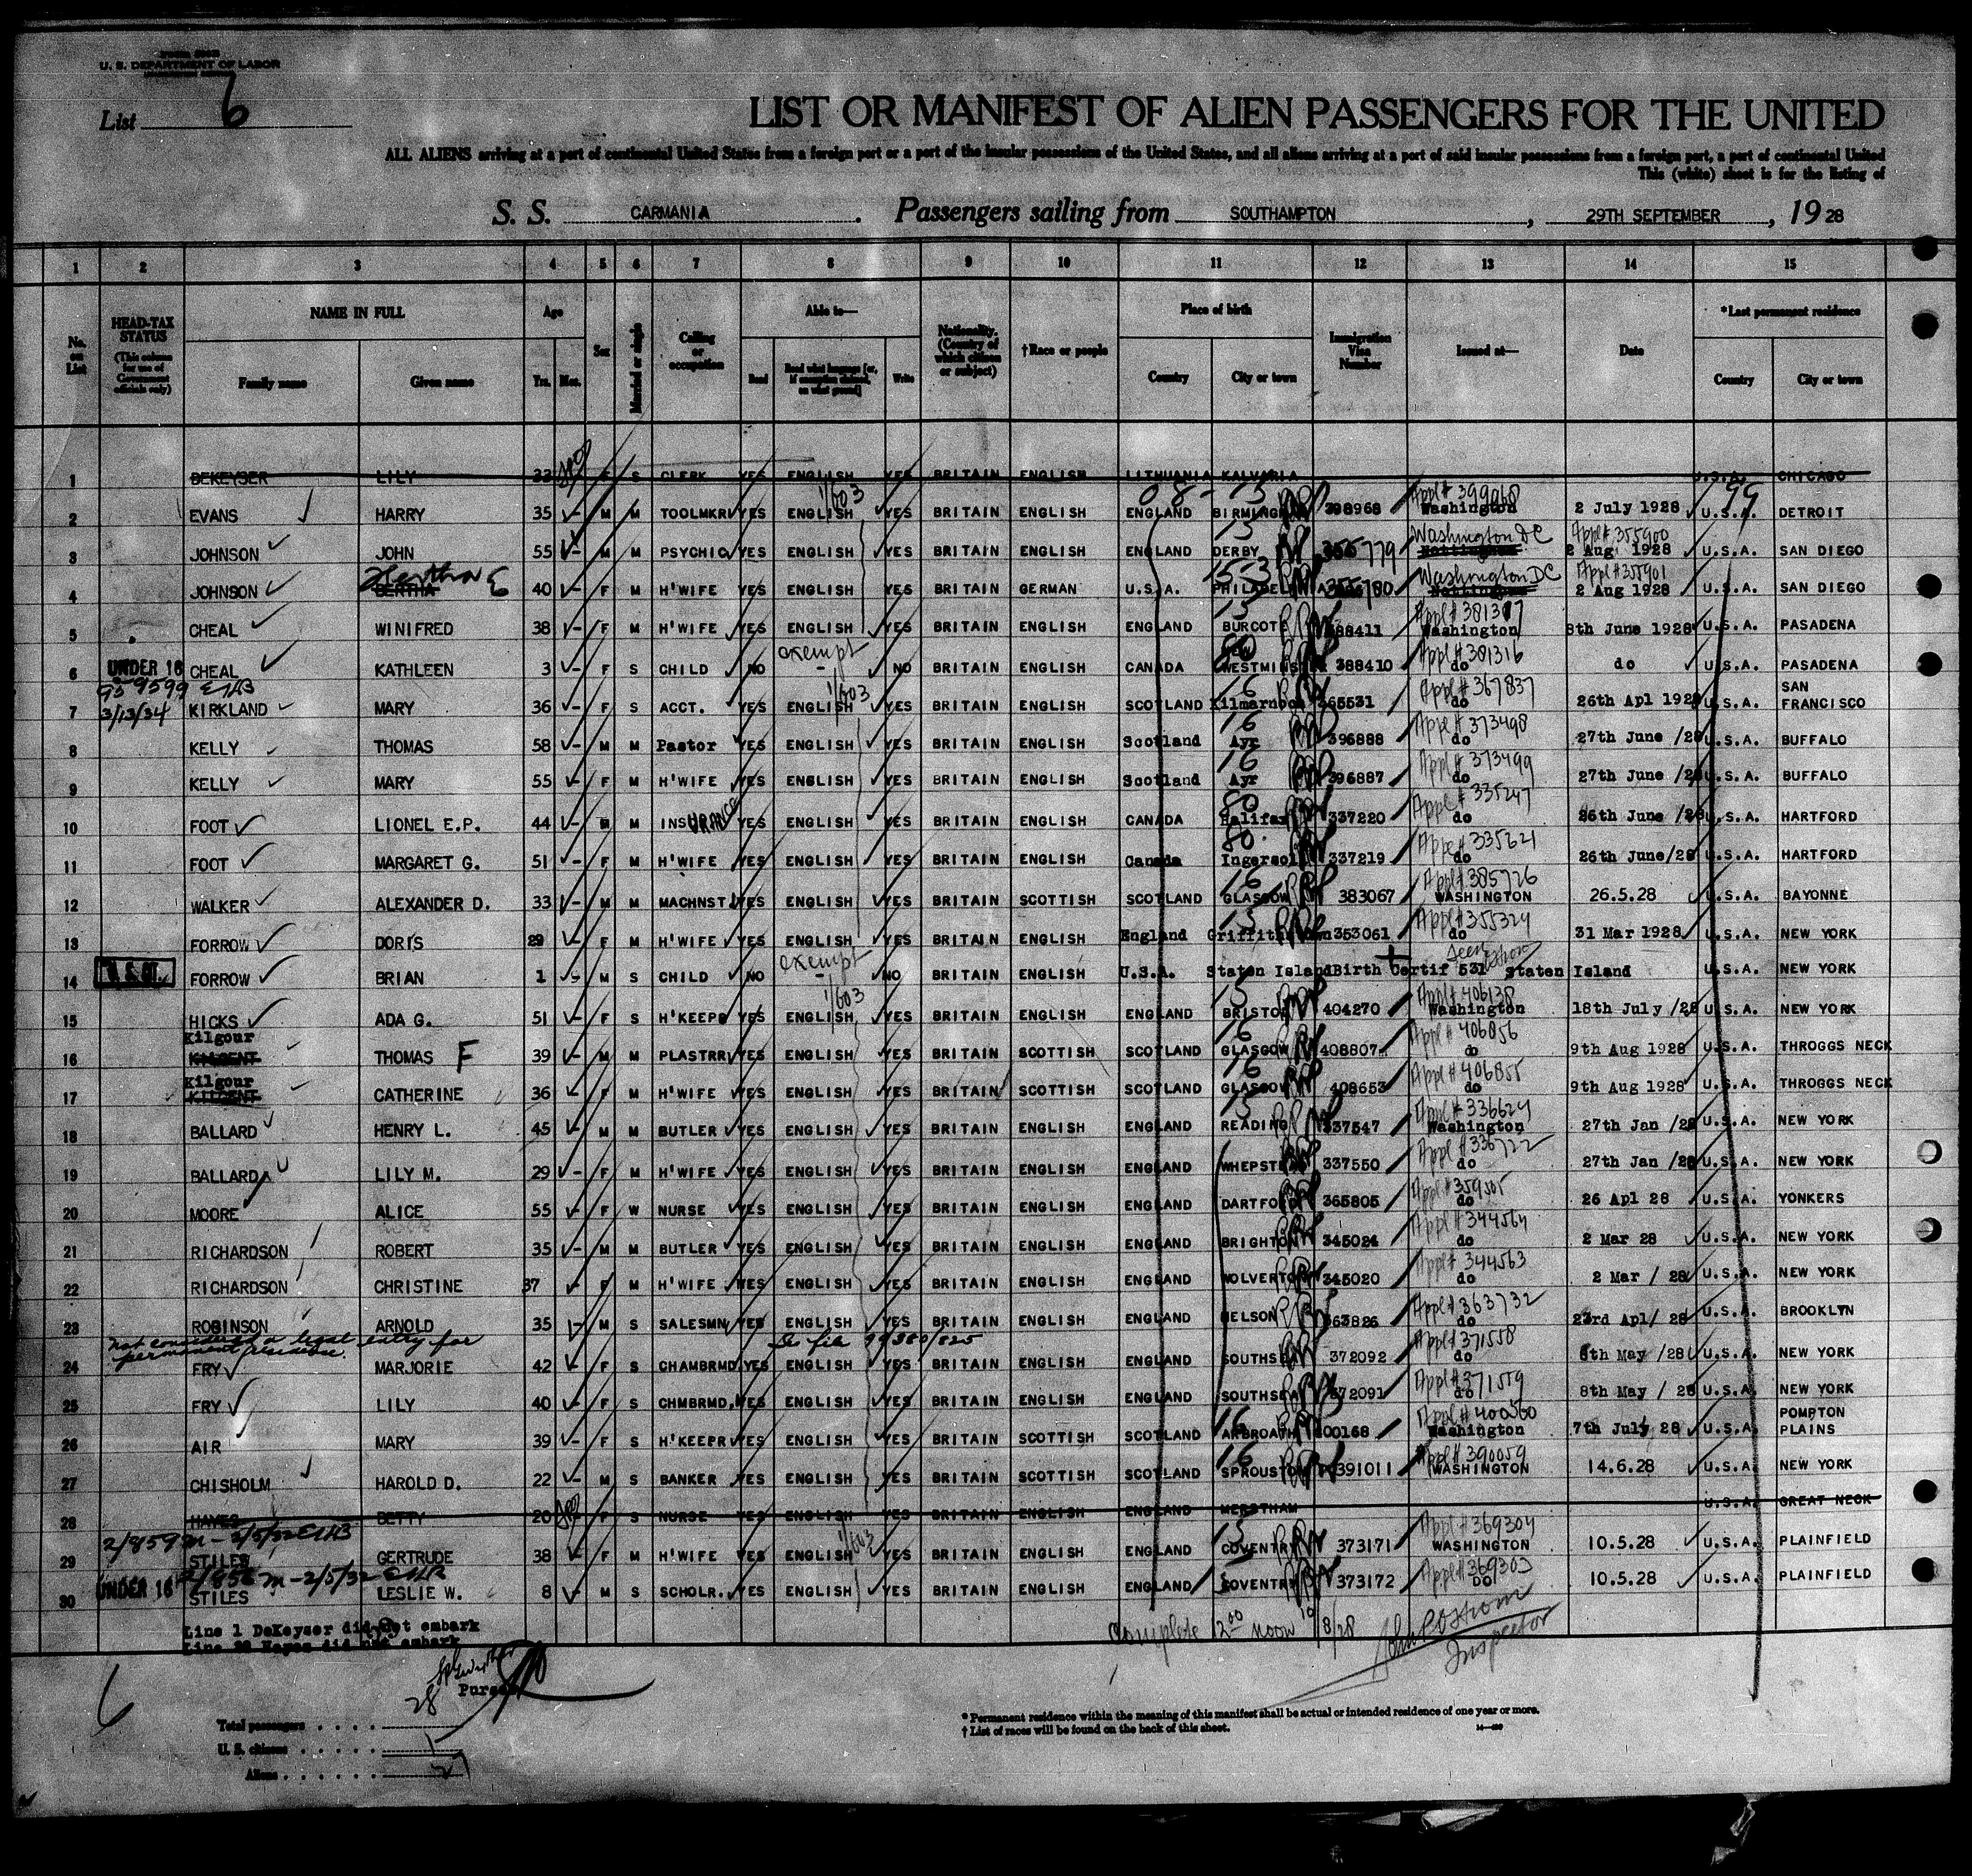 U. S. DEPARTMENT OF LABOR
List 6
LIST OR MANIFEST OF ALIEN PASSENGERS FOR THE UNITED
ALL ALIENS arriving at a port of continental United States from a foreign port or a port of the insular possessions of the United States, and all aliens arriving at a port of said insular possessions from a foreign port, a port of continental United
This (white) sheet is for the listing of
S. S. CARMANIA. Passengers sailing from SOUTHAMPTON, 29TH SEPTEMBER, 19 28
1 2 3 4 5 6 7 8 9 10 11 12 13 14 15
No. on List
HEAD-TAX STATUS (This column for use of Government officials only)
NAME IN FULL Family name Given name
Age Yrs. Mos.
Sex
Married or single
Calling or occupation
Able to— Read Read what language [or, if exemption claimed, on what ground] Write
Nationality. (Country of which citizen or subject)
†Race or people
Place of birth Country City or town
Immigration Visa Number
Issued at—
Date
*Last permanent residence Country City or town
1 DEKEYSER LILY 33 F S CLERK YES ENGLISH YES BRITAIN ENGLISH LITHUANIA KALVARIA U.S.A. CHICAGO
1/603 99
2 EVANS HARRY 35 M M TOOLMKR YES ENGLISH YES BRITAIN ENGLISH ENGLAND 398968 Appl # 399968 Washington 2 July 1928 U.S.A. DETROIT
3 JOHNSON JOHN 55 M M PSYCHIC YES ENGLISH YES BRITAIN ENGLISH ENGLAND DERBY 355779 Washington DC Appl # 355900 2 Aug 1928 U.S.A. SAN DIEGO
4 JOHNSON BERTHA Hertha E 40 F M H'WIFE YES ENGLISH YES BRITAIN GERMAN U.S.A. 355780 Washington DC Appl # 355901 2 Aug 1928 U.S.A. SAN DIEGO
5 CHEAL WINIFRED 38 F M H'WIFE YES ENGLISH YES BRITAIN ENGLISH ENGLAND BURCOT 388411 Washington 8th June 1928 U.S.A. PASADENA
6 UNDER 16 CHEAL KATHLEEN 3 F S CHILD NO exempt - NO BRITAIN ENGLISH CANADA 388410 Appl # 381316 do do U.S.A. PASADENA
7 3/13/34 KIRKLAND MARY 36 F S ACCT. YES ENGLISH 1/603 YES BRITAIN ENGLISH SCOTLAND Kilmarnock 365531 Appl # 367837 do 26th Apl 1928 U.S.A. SAN FRANCISCO
8 KELLY THOMAS 58 M M Pastor YES ENGLISH YES BRITAIN ENGLISH Scotland Ayr 396888 Appl # 373498 do 27th June /28 U.S.A. BUFFALO
9 KELLY MARY 55 F M H'WIFE YES ENGLISH YES BRITAIN ENGLISH Scotland Ayr 396887 Appl # 373499 do 27th June /28 U.S.A. BUFFALO
10 FOOT LIONEL E.P. 44 M M INSURANCE YES ENGLISH YES BRITAIN ENGLISH CANADA Halifax 337220 Appl # 335247 do 26th June /28 U.S.A. HARTFORD
11 FOOT MARGARET G. 51 F M H'WIFE YES ENGLISH YES BRITAIN ENGLISH Canada Ingersoll 337219 Appl # 335621 do 26th June/28 U.S.A. HARTFORD
12 WALKER ALEXANDER D. 33 M M MACHNST YES ENGLISH YES BRITAIN SCOTTISH SCOTLAND GLASGOW 383067 Appl # 385726 WASHINGTON 26.5.28 U.S.A. BAYONNE
13 FORROW DORIS 29 F M H'WIFE YES ENGLISH YES BRITAIN ENGLISH England 353061 Appl # 355324 do 31 Mar 1928 U.S.A. NEW YORK
14 U.S. CIT. FORROW BRIAN 1 M S CHILD NO exempt - NO BRITAIN ENGLISH U.S.A. Staten Island Birth Certif 531 Staten Island U.S.A. NEW YORK
15 HICKS ADA G. 51 F S H'KEEPR YES ENGLISH 1/603 YES BRITAIN ENGLISH ENGLAND BRISTOL 404270 Appl # 406138 Washington 18th July /28 U.S.A. NEW YORK
16 Kilgour THOMAS F 39 M M PLASTRR YES ENGLISH YES BRITAIN SCOTTISH SCOTLAND GLASGOW 408807 Appl # 406856 do 9th Aug 1928 U.S.A. THROGGS NECK
17 Kilgour CATHERINE 36 F M H'WIFE YES ENGLISH YES BRITAIN SCOTTISH SCOTLAND GLASGOW 408653 Appl # 406855 do 9th Aug 1928 U.S.A. THROGGS NECK
18 BALLARD HENRY L. 45 M M BUTLER YES ENGLISH YES BRITAIN ENGLISH ENGLAND READING 337547 Appl # 336624 Washington 27th Jan /28 U.S.A. NEW YORK
19 BALLARD LILY M. 29 F M H'WIFE YES ENGLISH YES BRITAIN ENGLISH ENGLAND 337550 Appl # 336722 do 27th Jan /28 U.S.A. NEW YORK
20 MOORE ALICE 55 F W NURSE YES ENGLISH YES BRITAIN ENGLISH ENGLAND DARTFORD 365805 Appl # 359505 do 26 Apl 28 U.S.A. YONKERS
21 RICHARDSON ROBERT 35 M M BUTLER YES ENGLISH YES BRITAIN ENGLISH ENGLAND BRIGHTON 345021 Appl # 344564 do 2 Mar 28 U.S.A. NEW YORK
22 RICHARDSON CHRISTINE 37 F M H'WIFE YES ENGLISH YES BRITAIN ENGLISH ENGLAND WOLVERTON 345020 Appl # 344563 do 2 Mar / 28 U.S.A. NEW YORK
23 ROBINSON ARNOLD 35 M S SALESMN YES ENGLISH YES BRITAIN ENGLISH ENGLAND NELSON 363826 Appl # 363732 do 23rd Apl/ 28 U.S.A. BROOKLYN
Not considered a legal entry for permanent residence. file 99380/825
24 FRY MARJORIE 42 F S CHAMBRMD YES ENGLISH YES BRITAIN ENGLISH ENGLAND SOUTHSEA 372092 Appl # 371558 do 8th May /28 U.S.A. NEW YORK
25 FRY LILY 40 F S CHMBRMD. YES ENGLISH YES BRITAIN ENGLISH ENGLAND SOUTHSEA 372091 Appl # 371559 do 8th May / 28 U.S.A. NEW YORK
26 AIR MARY 39 F S H'KEEPR YES ENGLISH YES BRITAIN SCOTTISH SCOTLAND ARBROATH 400168 Appl # 400560 Washington 7th July 28 U.S.A. POMPTON PLAINS
27 CHISHOLM HAROLD D. 22 M S BANKER YES ENGLISH YES BRITAIN SCOTTISH SCOTLAND SPROUSTON 391011 Appl # 390059 WASHINGTON 14.6.28 U.S.A. NEW YORK
28 HAYES BETTY 20 F S NURSE YES ENGLISH YES BRITAIN ENGLISH ENGLAND MERSTHAM U.S.A. GREAT NECK
29 STILES GERTRUDE 38 F M H'WIFE YES ENGLISH 1/603 YES BRITAIN ENGLISH ENGLAND COVENTRY 373171 Appl # 369304 WASHINGTON 10.5.28 U.S.A. PLAINFIELD
30 UNDER 16 STILES LESLIE W. 8 M S SCHOLR. YES ENGLISH YES BRITAIN ENGLISH ENGLAND COVENTRY 373172 Appl # 369303 DO 10.5.28 U.S.A. PLAINFIELD
Line 1 DeKeyser did not embark
Line 28 Hayes did not embark
Complete 12 00 noon 10/8/28
Inspector
Purser
Total passengers . . . . 28
U. S. citizens . . . . . 1
Aliens . . . . . . 27
* Permanent residence within the meaning of this manifest shall be actual or intended residence of one year or more.
† List of races will be found on the back of this sheet.